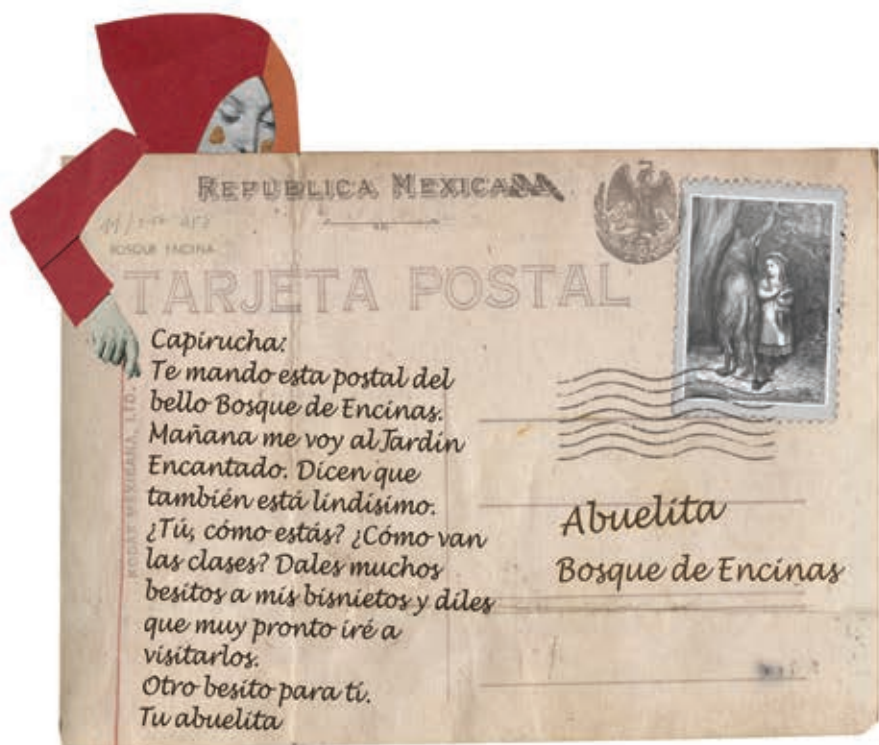 REPÚBLICA MEXICANA
BOSQUE ENCINA
TARJETA POSTAL
Capirucha:
Te mando esta postal del
bello Bosque de Encinas.
Mañana me voy al Jardín
Encantado. Dicen que
también está lindísimo.
¿Tú, cómo estás? ¿Cómo van
las clases? Dales muchos
besitos a mis bisnietos y diles
que muy pronto iré a
visitarlos.
Otro besito para ti.
Tu abuelita
KODAK MEXICANA, LTD.
Abuelita
Bosque de Encinas